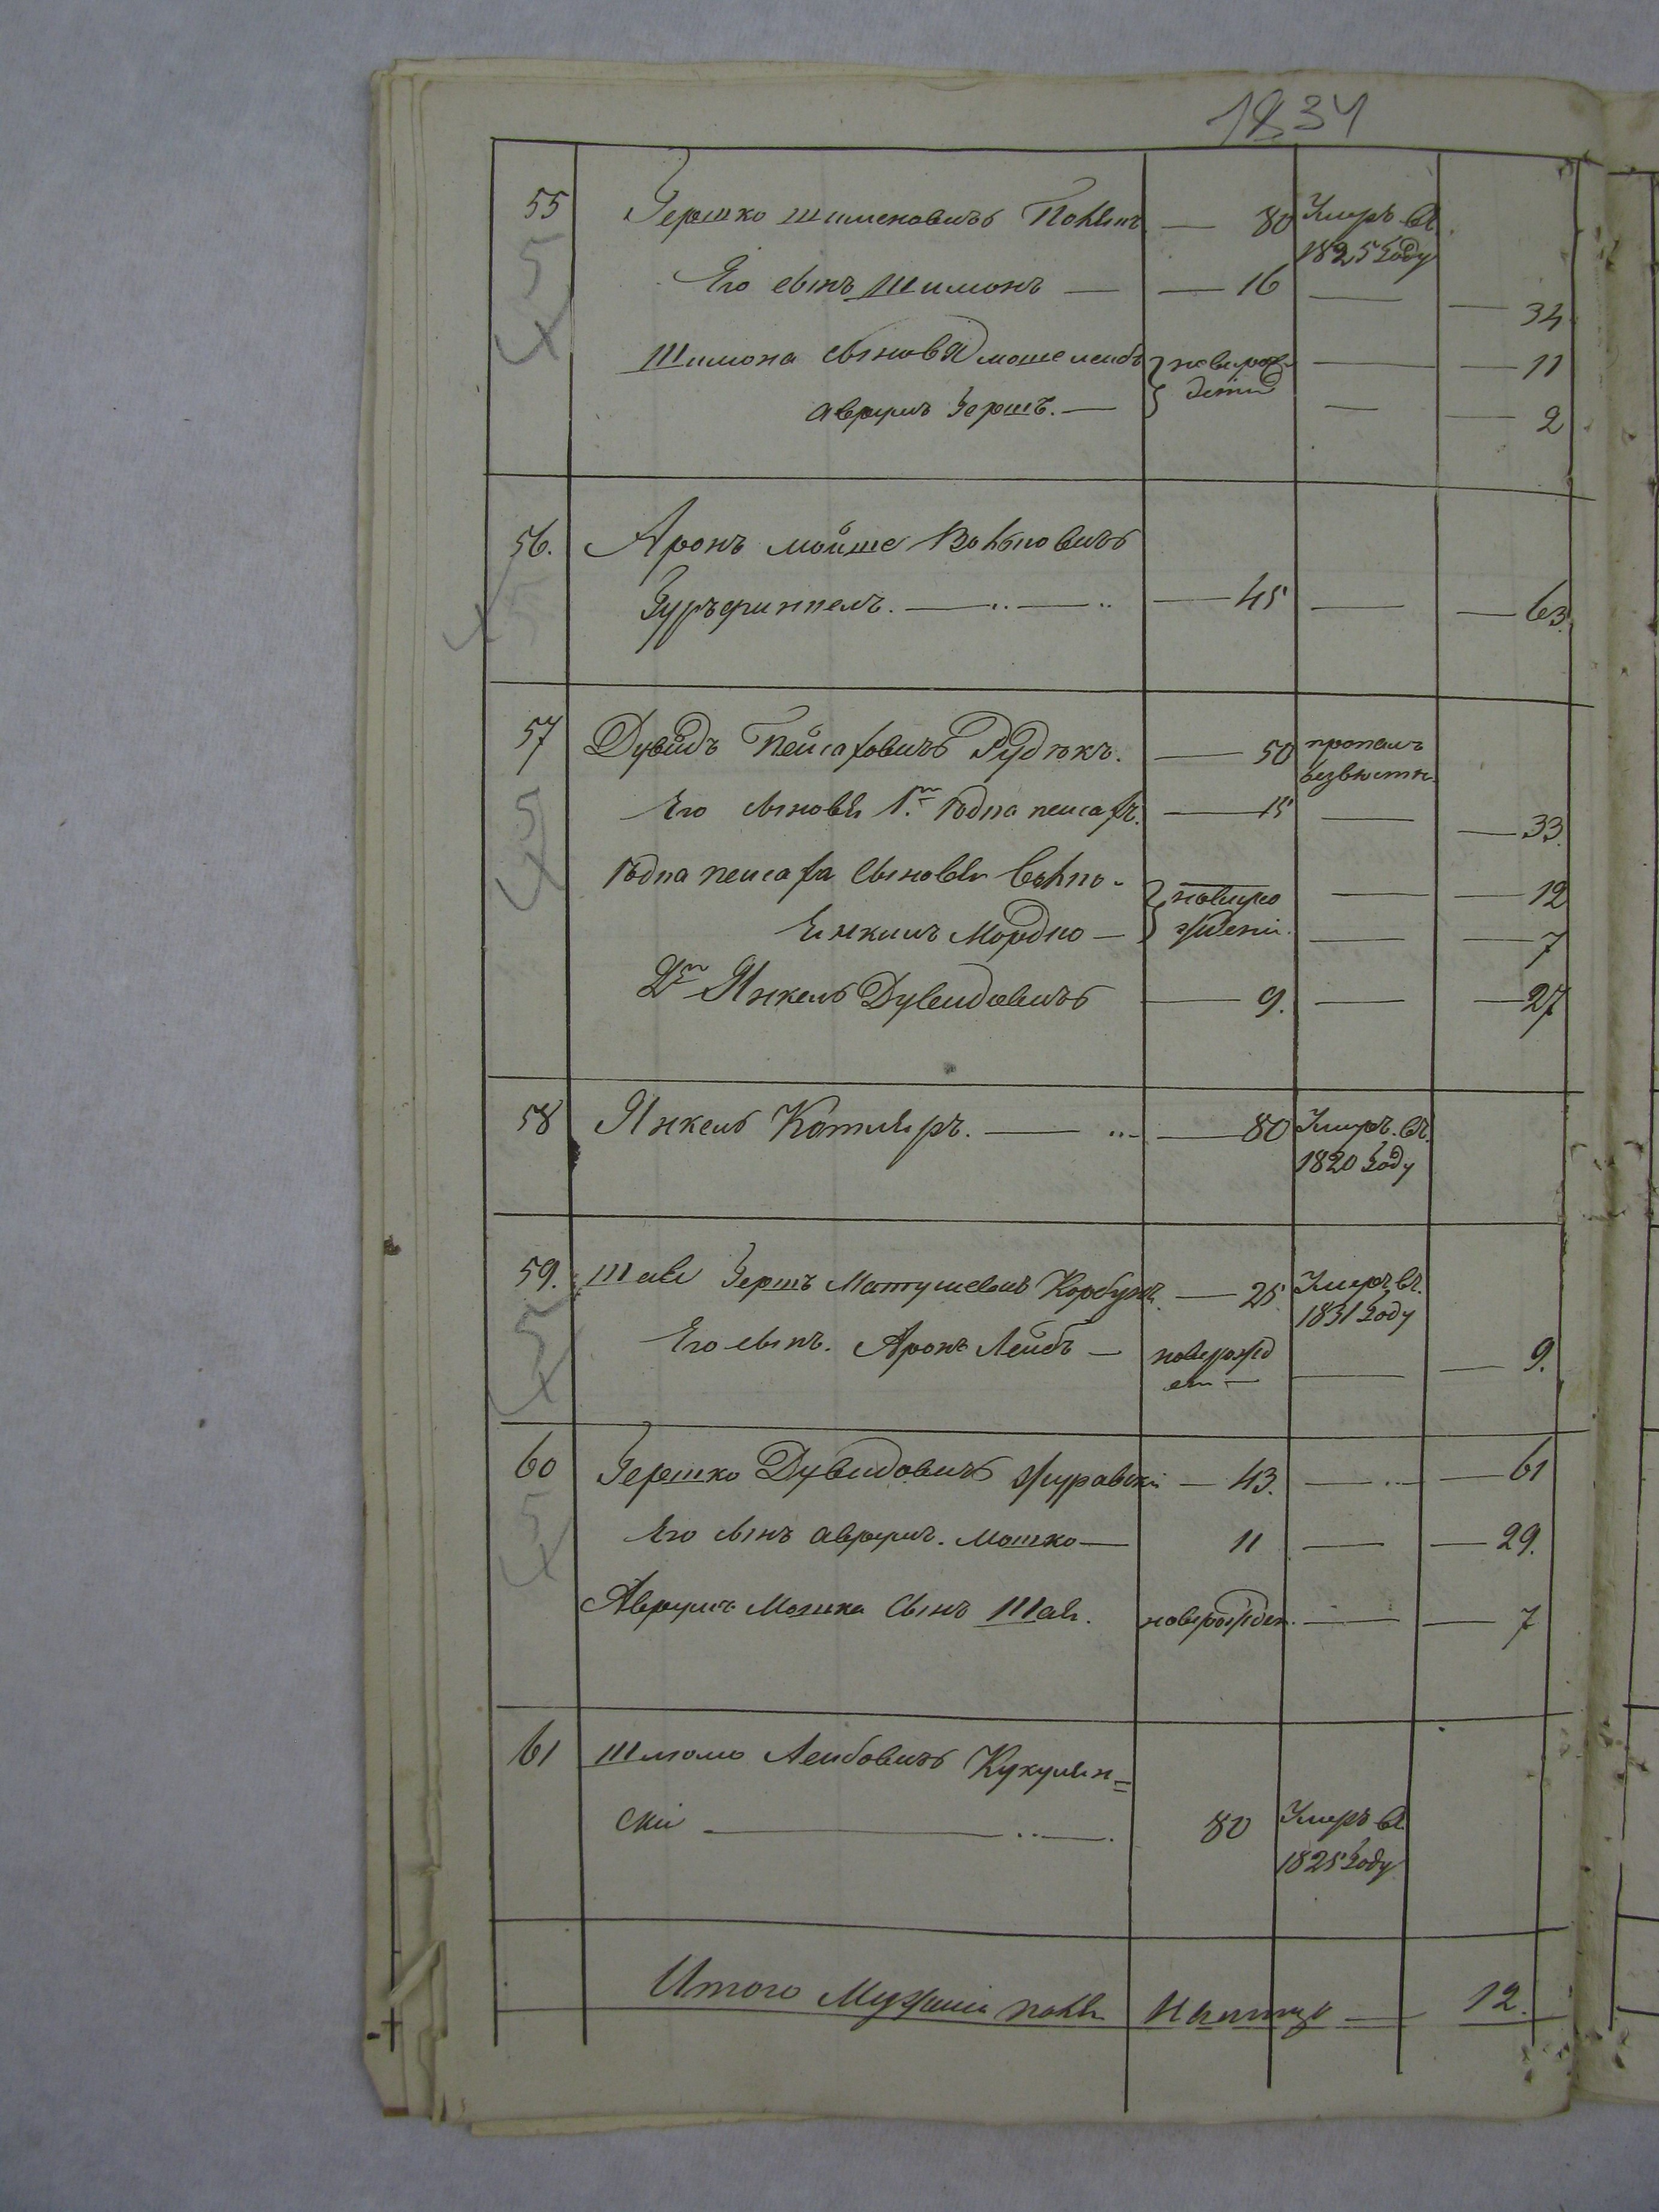 1834
55 Гершко Шименовичъ — 80 Умеръ въ
1825 году
Его сынъ Шимонъ — — 16 — — 34
Шимона сыновя Моше Леибъ новорож — — 11
Аврумъ Гершъ. — дении — — 2
56. Аронъ Мойше Волковичъ
Гурфинкель. — — 45 — — 63.
57 Дувидъ Пейсаховичъ Рудякъ. — 50 пропалъ
безвести.
Его сыновья 1й Годпа Пейсахъ. — 15 — — 33.
Годпа Пейсаха сыновья Волко — — 12
Мордко — новорождени. — — 7
2й Янкель Дувидовичъ — 9. — — 27
58 Янкель Котляръ. — — 80 Умеръ. въ.
1820 году
59. Шая Гершъ Матушевичъ Корбунъ. — 25 Умеръ въ.
1831 году
Его сынъ. Аронъ Лейбъ — новорожд — — 9.
ен —
60 Гершко Дувидовичъ Журавски — 43. — — 61
Его сынъ Аврумъ. Мошко — 11 — — 29.
Аврумъ Мошка сынъ Шая. новорожден. — — 7
61 Шлиома Леибовичъ Кукулян=
ски — 80 Умеръ въ
1825 году
Итого Мужеска пола налицо — 12.